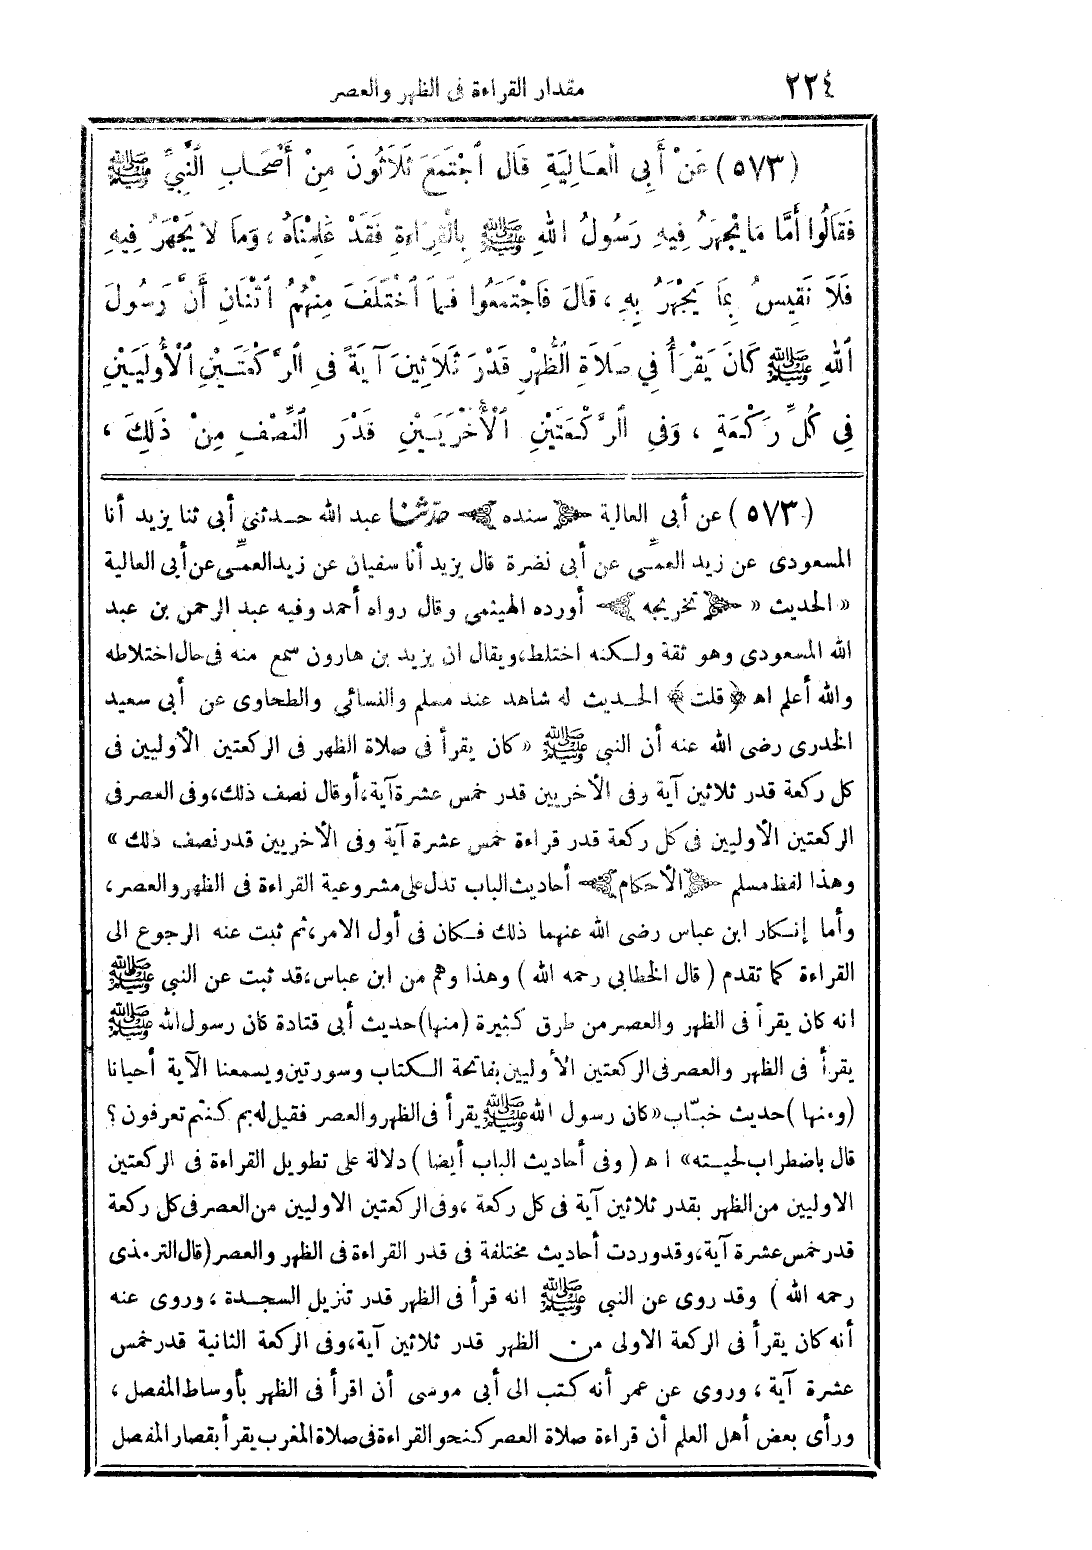 ٢٢٤ مقدار القراءة فى الظهر والعصر
(٥٧٣) عَنْ أَبِى الْعَالِيَةِ قَالَ اجْتَمَعَ ثَلَاثُونَ مِنْ أَصْحَابِ النَّبِيِّ ﷺ
فَقَالُوا أَمَّا مَا يَجْهَرُ فِيهِ رَسُولُ اللهِ ﷺ بِالْقِرَاءَةِ فَقَدْ عَلِمْنَاهُ ، وَمَا لَا يَجْهَرُ فِيهِ
فَلَا نَقِيسُ بِمَا يَجْهَرُ بِهِ ، قَالَ فَاجْتَمَعُوا فَمَا اخْتَلَفَ مِنْهُمُ اثْنَانِ أَنَّ رَسُولَ
اللهِ ﷺ كَانَ يَقْرَأُ فِي صَلَاةِ الظُّهْرِ قَدْرَ ثَلَاثِينَ آيَةً فِى الرَّكْعَتَيْنِ الْأُولَيَيْنِ
فِى كُلِّ رَكْعَةٍ ، وَفِى الرَّكْعَتَيْنِ الْأُخْرَيَيْنِ قَدْرَ النِّصْفِ مِنْ ذَلِكَ ،
(٥٧٣) عن أبى العالية ﴿ سنده ﴾ حدّثنا عبد الله حدثنى أبى ثنا يزيد أنا
المسعودى عن زيد العمِّى عن أبى نضرة قال يزيد أنا سفيان عن زيد العمِّى عن أبى العالية
« الحديث » ﴿ تخريجه ﴾ أورده الهيثمى وقال رواه أحمد وفيه عبد الرحمن بن عبد
الله المسعودى وهو ثقة ولكنه اختلط، ويقال ان يزيد بن هارون سمع منه فى حال اختلاطه
والله أعلم اهـ ﴿ قلت ﴾ الحديث له شاهد عند مسلم والنسائي والطحاوى عن أبى سعيد
الخدرى رضى الله عنه أن النبى ﷺ « كان يقرأ فى صلاة الظهر فى الركعتين الأوليين فى
كل ركعة قدر ثلاثين آية وفى الأخريين قدر خمس عشرة آية، أو قال نصف ذلك، وفى العصر فى
الركعتين الأوليين فى كل ركعة قدر قراءة خمس عشرة آية وفى الأخريين قدر نصف ذلك »
وهذا لفظ مسلم ﴿ الأحكام ﴾ أحاديث الباب تدل على مشروعية القراءة فى الظهر والعصر،
وأما إنكار ابن عباس رضى الله عنهما ذلك فكان فى أول الامر، ثم ثبت عنه الرجوع الى
القراءة كما تقدم ( قال الخطابى رحمه الله ) وهذا وهم من ابن عباس، قد ثبت عن النبى ﷺ
انه كان يقرأ فى الظهر والعصر من طرق كثيرة (منها) حديث أبى قتادة كان رسول الله ﷺ
يقرأ فى الظهر والعصر فى الركعتين الأوليين بفاتحة الكتاب وسورتين ويسمعنا الآية أحيانا
(ومنها) حديث خبّاب «كان رسول الله ﷺ يقرأ فى الظهر والعصر فقيل له بم كنتم تعرفون؟
قال باضطراب لحيته» ا هـ ( وفى أحاديث الباب أيضا ) دلالة على تطويل القراءة فى الركعتين
الاوليين من الظهر بقدر ثلاثين آية فى كل ركعة ، وفى الركعتين الاوليين من العصر فى كل ركعة
قدر خمس عشرة آية، وقد وردت أحاديث مختلفة فى قدر القراءة فى الظهر والعصر (قال الترمذى
رحمه الله ) وقد روى عن النبى ﷺ انه قرأ فى الظهر قدر تنزيل السجدة ، وروى عنه
أنه كان يقرأ فى الركعة الاولى من الظهر قدر ثلاثين آية، وفى الركعة الثانية قدر خمس
عشرة آية ، وروي عن عمر أنه كتب الى أبى موسى أن اقرأ فى الظهر بأوساط المفصل ،
ورأى بعض أهل العلم أن قراءة صلاة العصر كنحو القراءة فى صلاة المغرب يقرأ بقصار المفصل